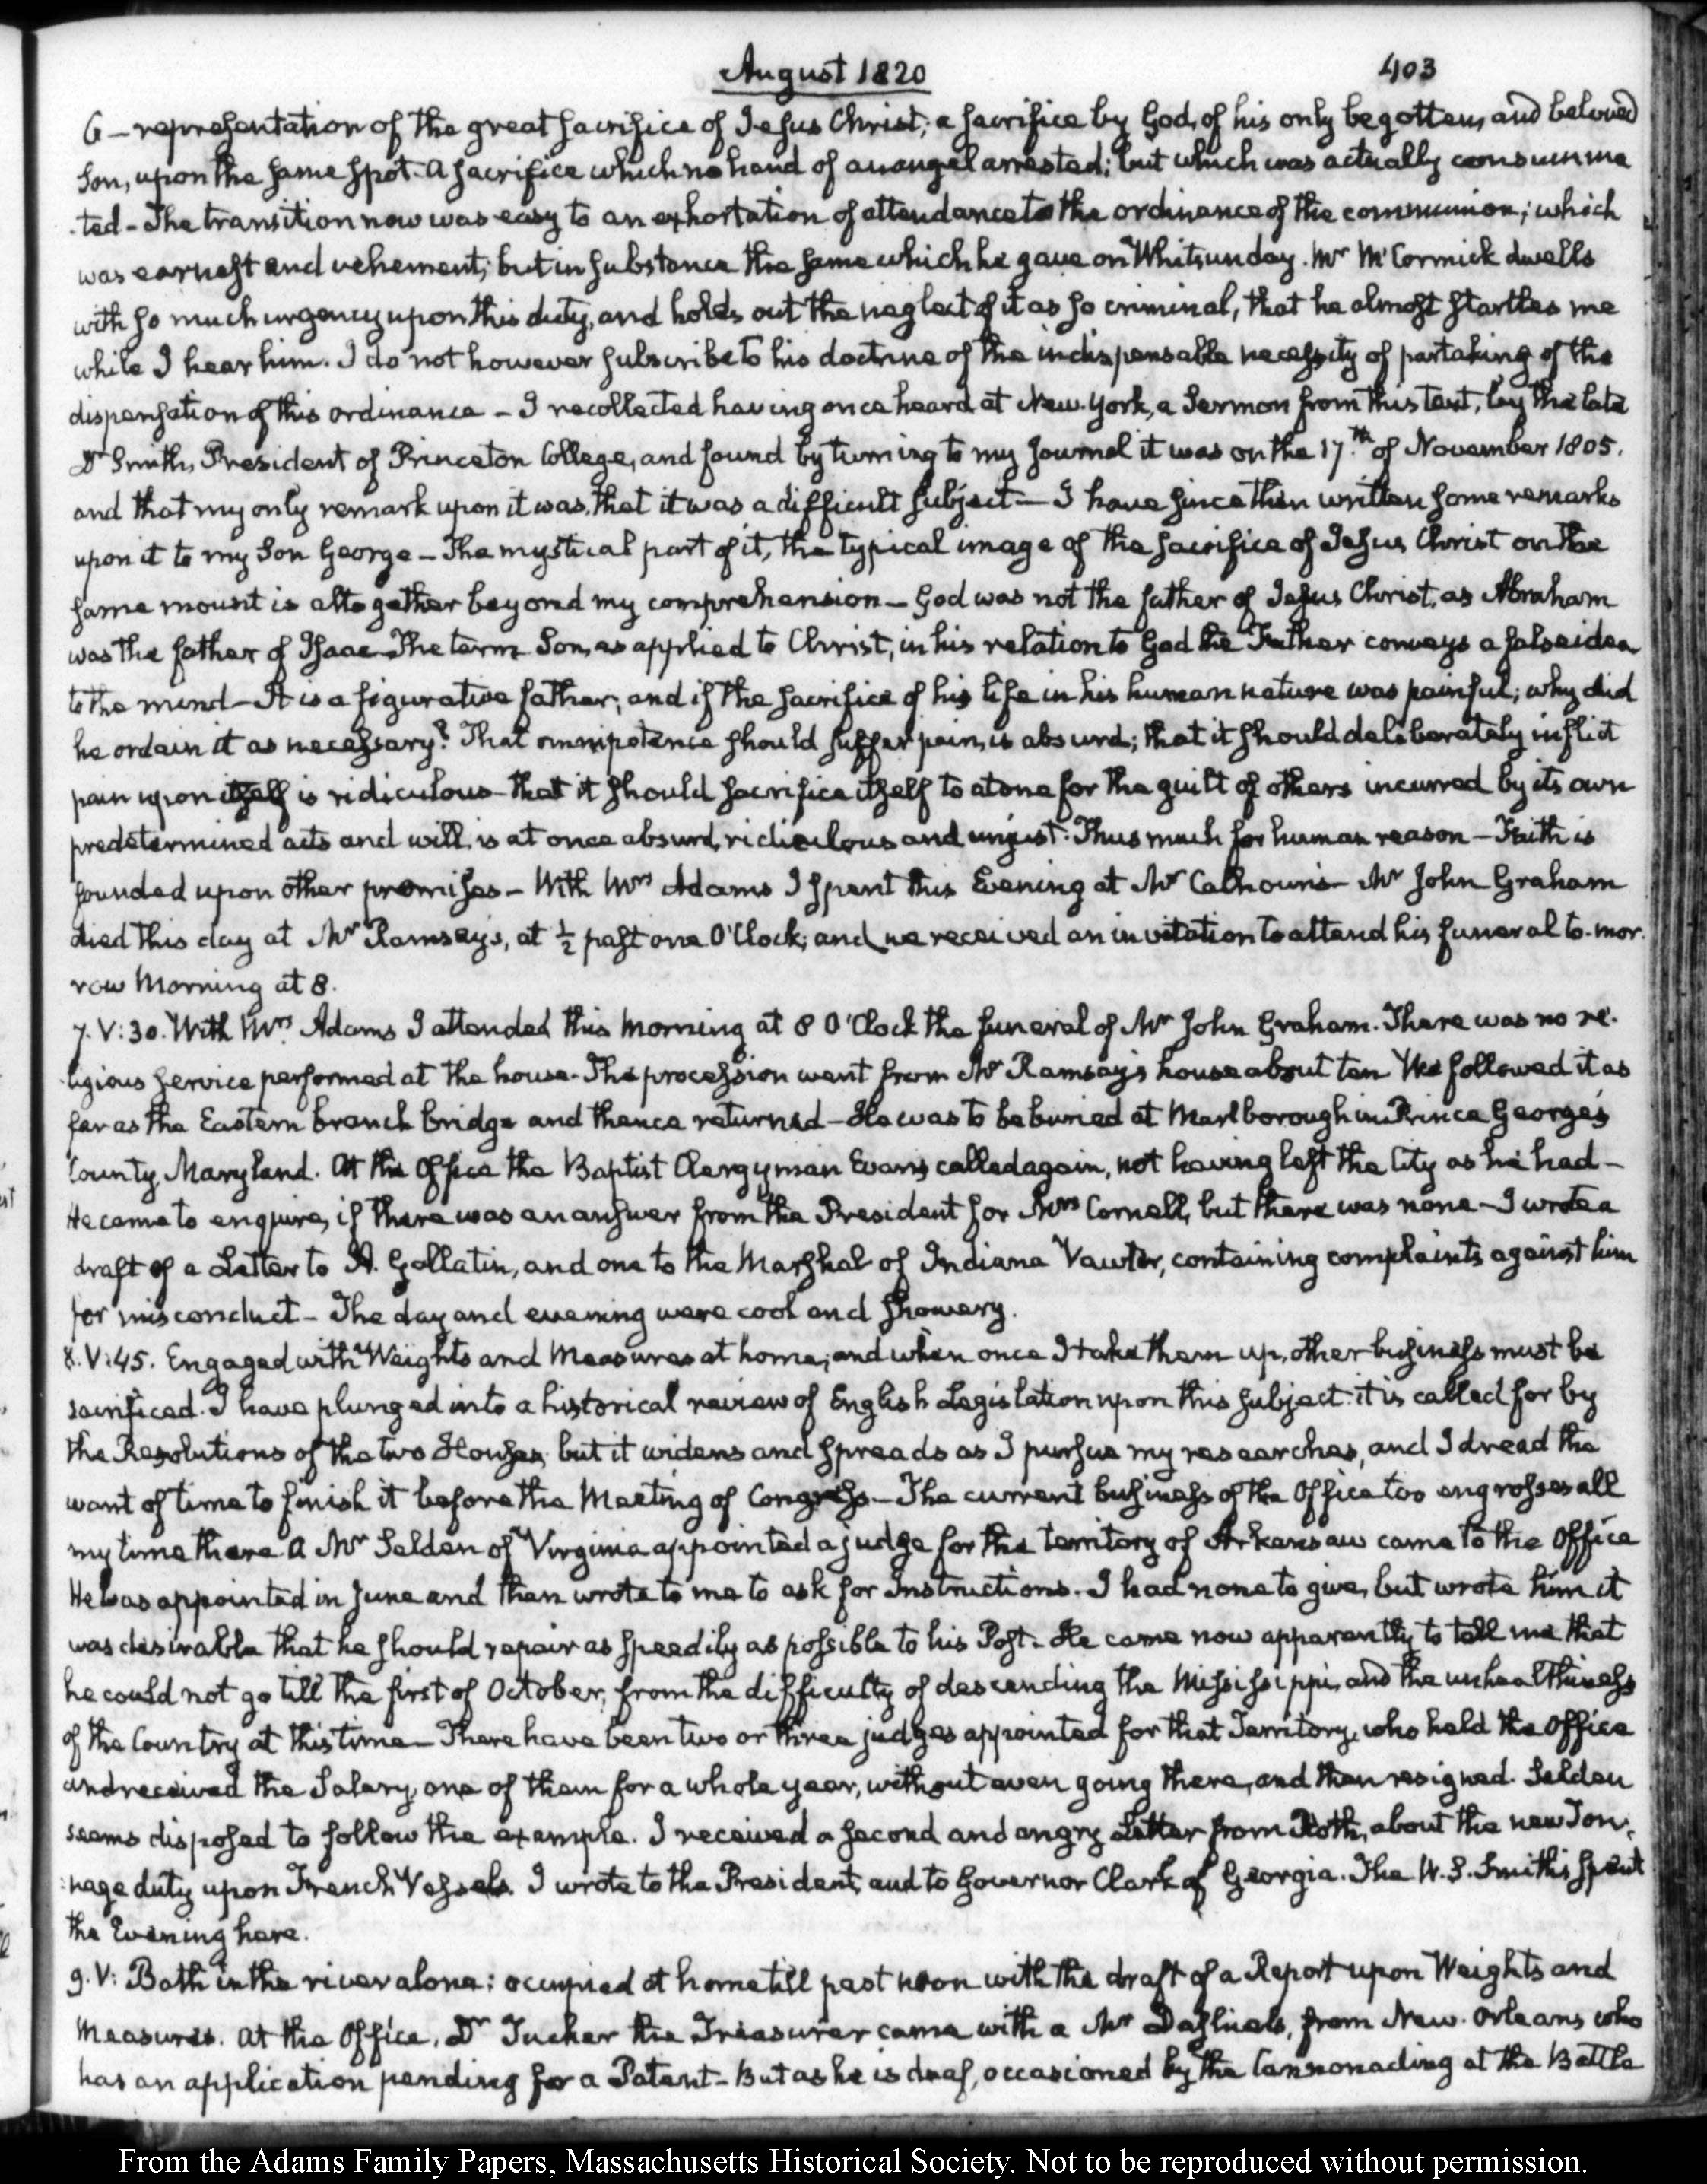 August 1820
403
6 – representation of the great sacrifice of Jesus Christ; a sacrifice by God, of his only begotten, and beloved
Son, upon the same spot. A sacrifice which no hand of an angel arrested; but which was actually consumma
-ted – The transition now was easy to an exhortation of attendance to the ordinance of the communion; which
was earnest and vehement; but in substance the same which he gave on Whitsunday. Mr McCormick dwells
with so much urgency upon this duty, and holds out the neglect of it as so criminal, that he almost startles me
while I hear him. I do not however subscribe to his doctrine of the indispensable necessity of partaking of the
dispensation of this ordinance – I recollected having once heard at New-York, a Sermon from this text, by the late
Dr Smith, President of Princeton College, and found by turning to my Journal it was on the 17.th of November 1805.
and that my only remark upon it was, that it was a difficult subject – I have since then written some remarks
upon it to my Son George – The mystical part of it, the typical image of the sacrifice of Jesus Christ on the
same mount is altogether beyond my comprehension – God was not the father of Jesus Christ, as Abraham
was the father of Isaac – The term Son, as applied to Christ, in his relation to God the Father conveys a false idea
to the mind – It is a figurative father; and if the sacrifice of his life in his human nature was painful; why did
he ordain it as necessary? That omnipotence should suffer pain, is absurd; that it should deliberately inflict
pain upon itself is ridiculous – that it should sacrifice itself to atone for the guilt of others incurred by its own
predetermined acts and will, is at once absurd, ridiculous and unjust. Thus much for human reason – Faith is
founded upon other promises – With Mrs Adams I spent this Evening at Mr Calhoun's – Mr John Graham
died this day at Mr Ramsay's, at ½ past one O'Clock; and we received an invitation to attend his funeral to-mor-
row Morning at 8.
7. V:30. With Mrs. Adams I attended this Morning at 8 O'Clock the funeral of Mr John Graham. There was no re-
-ligious service performed at the house – The procession went from Mr Ramsay's house about ten We followed it as
far as the Eastern branch bridge and thence returned – He was to be buried at Marlborough in Prince George's
County, Maryland. At the Office the Baptist Clergyman Evans called again, not having left the City as he had –
He came to enquire, if there was an answer from the President for Mrs Cornell, but there was none – I wrote a
draft of a Letter to A. Gallatin, and one to the Marshal of Indiana Vawter, containing complaints against him
for misconduct – The day and evening were cool and showery.
8. V:45. Engaged with Weights and Measures at home; and when once I take them up, other business must be
sacrificed. I have plunged into a historical review of English Legislation upon this subject. it is called for by
the Resolutions of the two Houses, but it widens and spreads as I pursue my researches, and I dread the
want of time to finish it before the Meeting of Congress – The current business of the Office too engrosses all
my time there. A Mr Selden of Virginia appointed a judge for the territory of Arkansaw came to the Office
He was appointed in June and then wrote to me to ask for Instructions. I had none to give, but wrote him it
was desirable that he should repair as speedily as possible to his Post – He came now apparently to tell me that
he could not go till the first of October, from the difficulty of descending the Mississippi, and the unhealthiness
of the Country at this time – There have been two or three judges appointed for that Territory, who held the Office
and received the Salary, one of them for a whole year, without even going there, and then resigned. Selden
seems disposed to follow the example. I received a second and angry Letter from Roth, about the new Ton-
-nage duty upon French Vessels. I wrote to the President, and to Governor Clark of Georgia. The W. S. Smith's spent
the Evening here.
9. V: Bath in the river alone: occupied at home till past noon with the draft of a Report upon Weights and
Measures. At the Office, Dr Tucker the Treasurer came with a Mr from New-Orleans, who
has an application pending for a Patent – But as he is deaf, occasioned by the Cannonading at the Battle
From the Adams Family Papers, Massachusetts Historical Society. Not to be reproduced without permission.